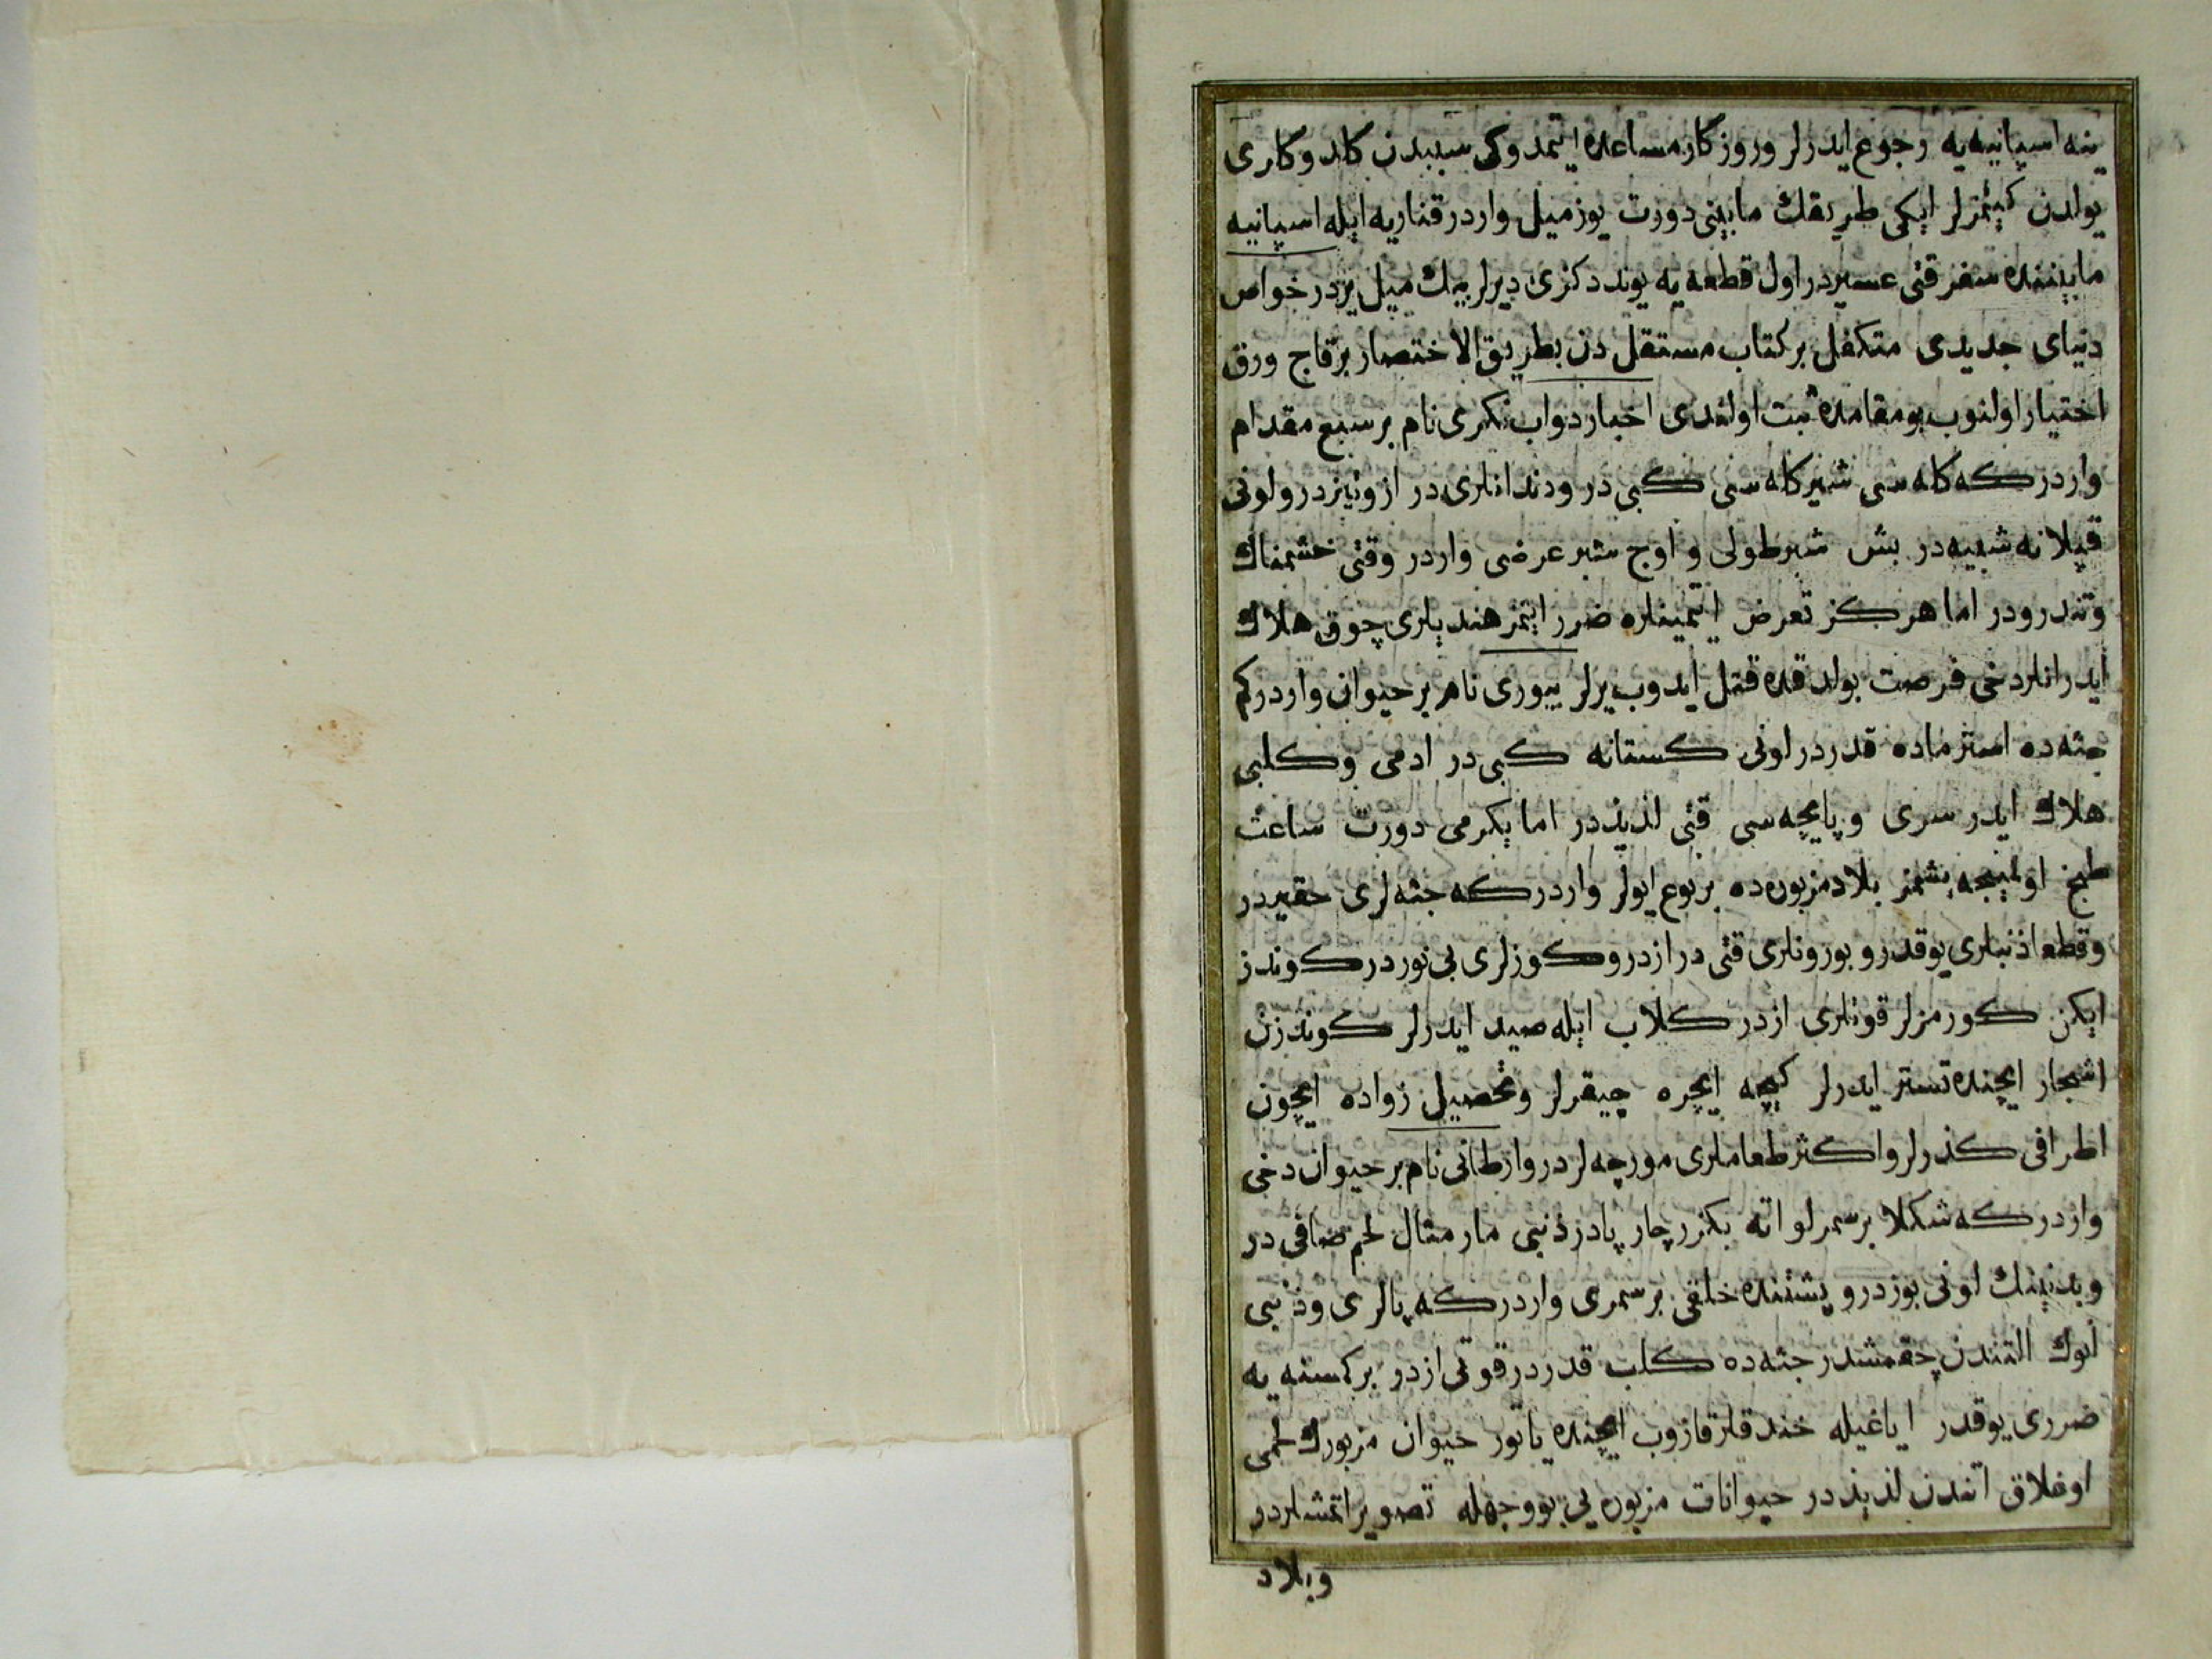 ینه اسپانیه‌یه رجوع ایدرلر وروزکار مساعده ایتمدوکی سببدن کلدوکلری
یولدن کیتمزلر ایکی طریقك مابینی دورت یوز میل واردر قناریه ایله اسپانیه
مابیننده سفر قتی عسیردر اول قطعه‌یه یوند دکزی دیرلر بیك میل یردر خواص
دنیای جدیدی متکفل بر کتاب مستقل دن بطریق الاختصار بر قاج ورق
اختیار اولنوب بو مقامده ثبت اولندی اخبار دواب نکری نام بر سبع مقدام
واردر که کله سی شیر کله سی کبی در ودندانلری دراز وتیزدر ولونی
قپلانه شبیه در بش شبر طولی و اوج شبر عرضی واردر وقتی خشمناك
وتندرودر اما هرکز تعرض ایتمینلره ضرر ایتمز هندیلری چوق هلاك
ایدر انلر دخی فرصت بولدقده قتل ایدوب یرلر بیوری نام بر حیوان واردر کم
جثه ده استر ماده قدردر لونی کستانه کبی در ادمی وکلبی
هلاك ایدر سری و پایچه سی قتی لذیذدر اما یکرمی دورت ساعت
طبخ اولمینجه پشمز بلاد مزبوره ده بر نوع ایولر واردر که جثه لری حقیردر
وقطعا ذنبلری یوقدر و بورونلری قتی درازدر و کوزلری بی نوردر کوندز
ایکن کورمزلر قوتلری ازدر کلاب ایله صید ایدرلر کوندزن
اشجار ایچنده تستر ایدرلر کیچه ایچره چیقرلر وتحصیل زواده ایچون
اطرافی کذرلر واکثر طعاملری مورچه لردر وارطانی نام بر حیوان دخی
واردر که شکلا بر سمرلو اته بکزر چار پادر ذنبی مار مثال لحم صافی در
وبدنینك لونی بوزدر و پشتنده خلقی بر سمری واردر که پالری وذنبی
انوك التندن چقمشدر جثه ده کلب قدردر قوتی ازدر بر کمسنه یه
ضرری یوقدر ایاغیله خندقلر قازوب ایچنده یاتور حیوان مزبورك لحمی
اوغلاق اتندن لذیذدر حیوانات مزبوره یی بو وجهله تصویر اتمشلردر
وبلاد